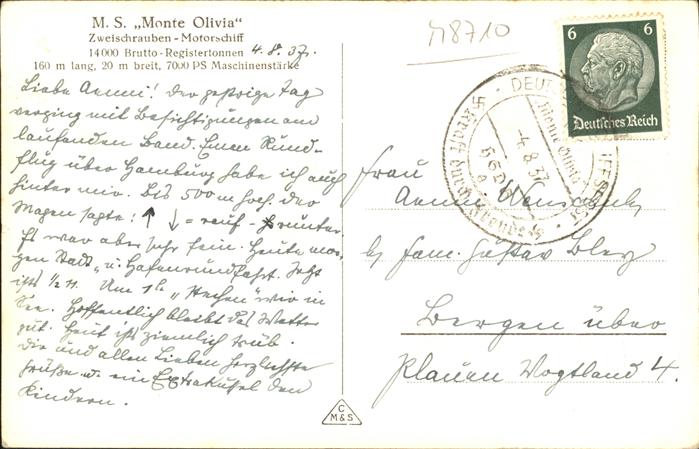 M. S. „Monte Olivia“
Zweischrauben - Motorschiff
14 000 Brutto-Registertonnen 4.8.37.
160 m lang, 20 m breit, 7000 PS Maschinenstärke
Liebe Aenni! Der gestrige Tag
verging mit Besichtigungen am
laufenden Band. Einen Rund-
flug über Hamburg habe ich auch
hinter mir. Bis 500 m hoch. Der
Magen sagte: ↑ ↓ = rauf - runter.
Es war aber sehr fein. Heute mor-
gen Stadt „u. Hafenrundfahrt. Jetzt
ists ½ 11. Um 1h „stechen“ wir in
See. Hoffentlich bleibt das Wetter
gut. Heut ists ziemlich trüb.
Dir und allen Lieben herzlichste
Grüße u. ein Extraküßel den
Kindern.
C
M&S
M8710
6 6
Deutsches Reich
4.8.37
Kraft durch Freude
Monte Olivia
Frau
Aenne
b/ Fam. Gustav
Bergen über
Plauen Vogtland 4.